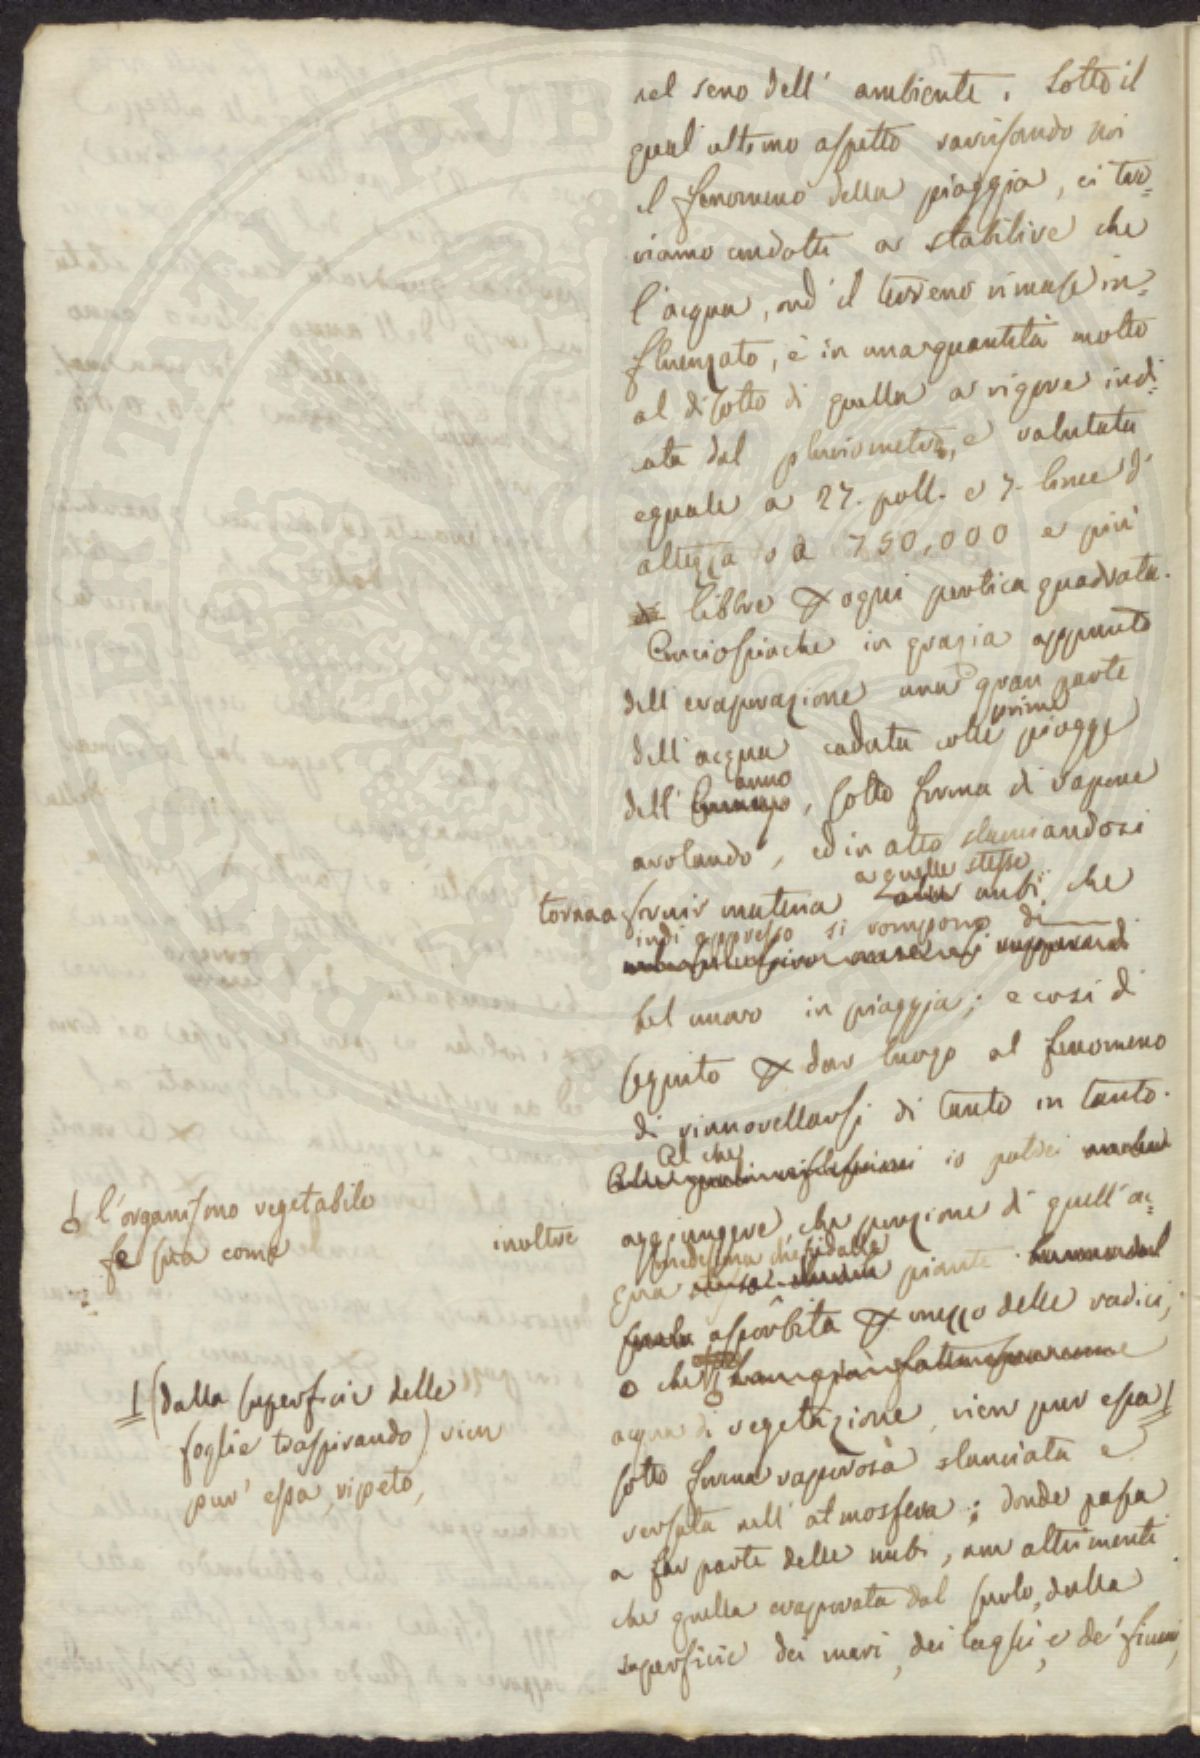 nel seno dell' ambiente. Sotto il
qual ultimo aspetto ravvisando noi
il fenomeno della pioggia, ci tro=
viamo condotti a stabilire che
l'acqua, ond' il terreno rimase in=
fluenzato, è in una quantità molto
al di sotto di quella a rigore indi=
cata dal pluviometro, e valutata
eguale a 27. poll. e 7. linee d'
altezza o a 750,000 e più
libbre per ogni pertica quadrata.
Conciosiache in grazia appunto
dell' evaporazione una gran parte
prime
dell' acqua caduta colle piogge
anno
dell' , sotto forma di vapore
avolando, ed in alto slanciandosi
a quelle stesse
torna a fornir materia nubi che
indi appresso si rompono di
bel nuovo in pioggia; e così di
seguito per dar luogo al fenomeno
di rinnovellarsi di tanto in tanto.
Al che
io potrei
inoltre aggiungere, che porzione di quell' ac=
medesima che dalle
qua piante
assorbita per mezzo delle radici,
o che
acqua di vegetazione, vien pur essa
sotto forma vaporosa slanciata e
versata nell' atmosfera; donde passa
a far parte delle nubi, non altrimenti
che quella evaporata dal suolo, dalla
superficie dei mari, dei laghi, e de' fiumi,
l'organismo vegetabile
fe sua come
(dalla superficie delle
foglie traspirando) vien
pur' essa, ripeto,